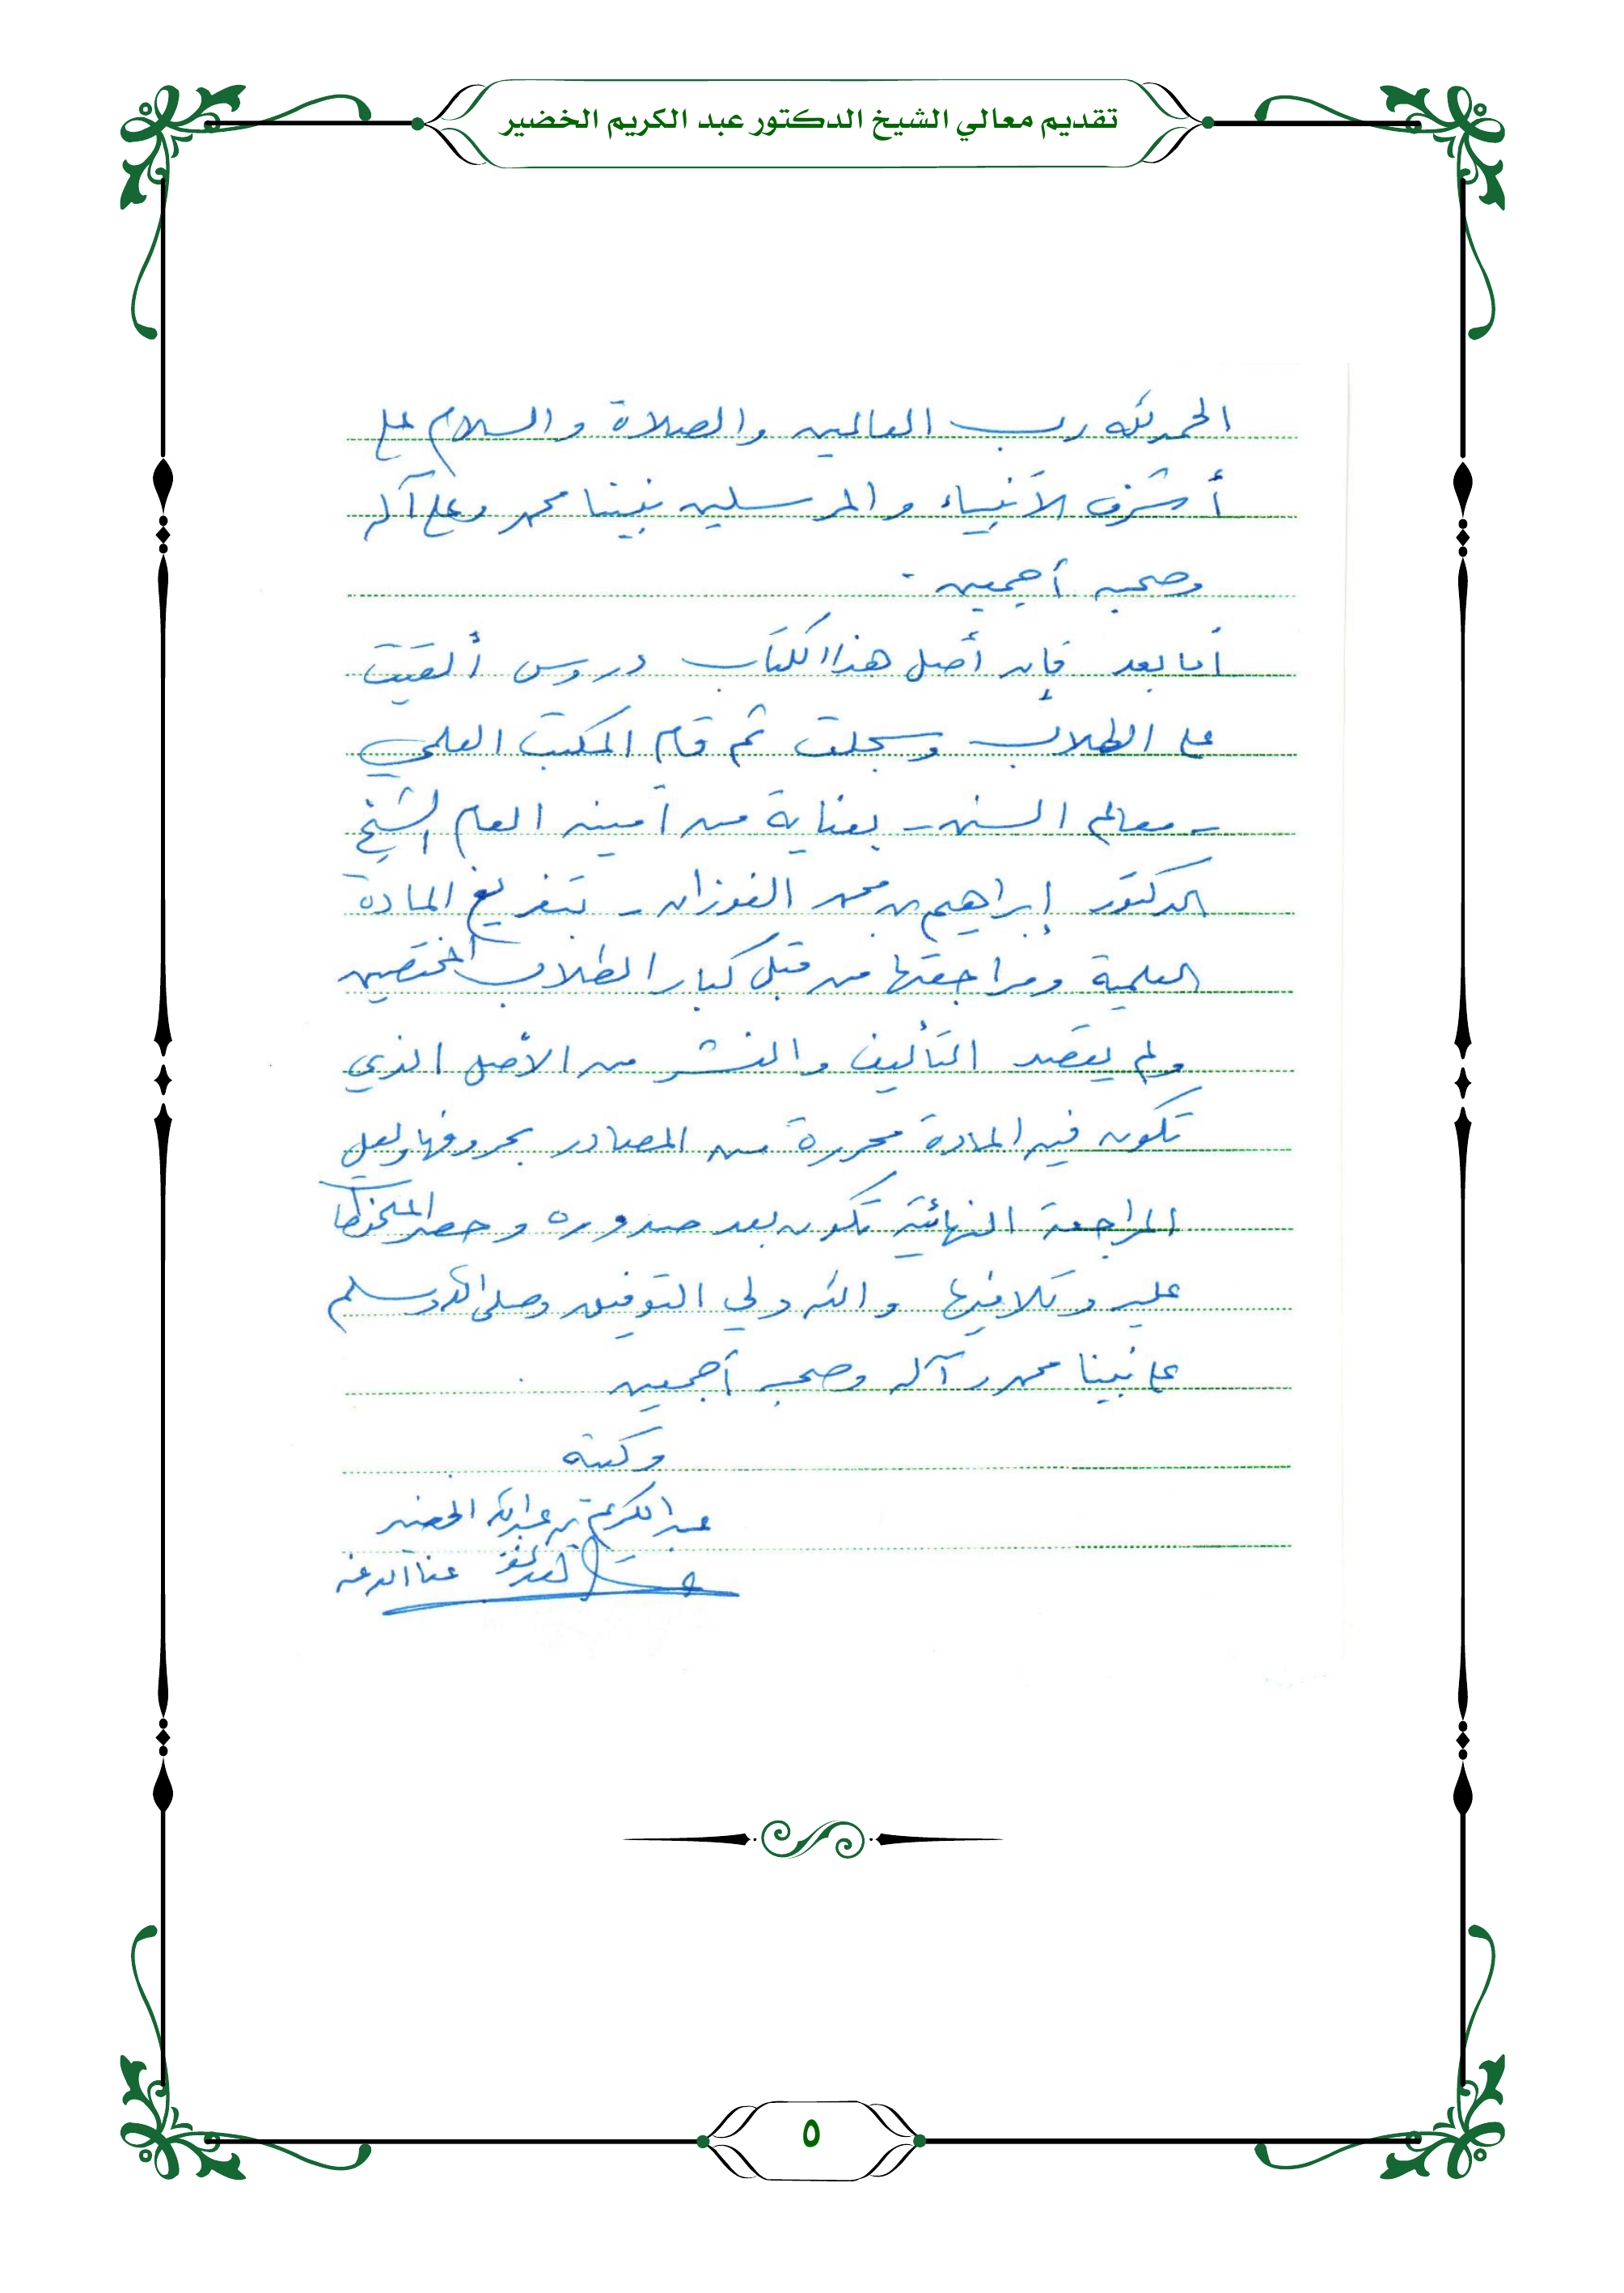 تقديم معالي الشيخ الدكتور عبد الكريم الخضير
الحمد لله رب العالمين والصلاة والسلام على
أشرف الأنبياء والمرسلين نبينا محمد وعلى آله
وصحبه أجمعين.
أما بعد فإن أصل هذا الكتاب دروس ألقيت
على الطلاب وسجلت ثم قام المكتب العلمي
- معالم السنن - بعناية من أمينه العام الشيخ
الدكتور إبراهيم بن محمد الفوزان - بتفريغ المادة
العلمية ومراجعتها من قبل كبار الطلاب المختصين
ولم يقصد التأليف والنشر من الأصل الذي
تكون فيه المادة محررة من المصادر بحروفها ولعل
المراجعة النهائية تكون بعد صدوره وحصر الملحوظات
عليه وتلافيها والله ولي التوفيق وصلى الله وسلم
على نبينا محمد وآله وصحبه أجمعين
وكتبه
عبد الكريم بن عبد الله الخضير
عفا الله عنه
٥